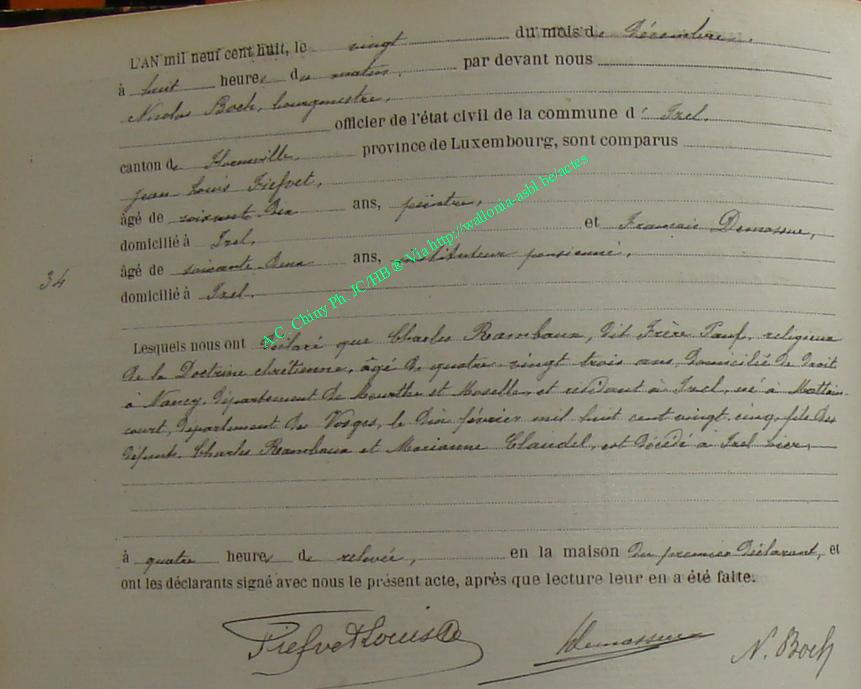 L'AN mil neuf cent huit, le vingt du mois de Décembre,
à huit heures du matin, par devant nous
Nicolas Boch, bourgmestre,
officier de l'état civil de la commune d' Izel,
canton de Florenville, province de Luxembourg, sont comparus
Jean Louis Fiefvet,
âgé de soixante dix ans, peintre,
domicilié à Izel, et François Demasure,
34
âgé de soixante-deux ans, instituteur pensionné,
domicilié à Izel,
A.C. Chiny Ph. JC/HB ® Via http://wallonia-asbl.be/actes
Lesquels nous ont déclaré que Charles Rambaux, dit Frère, religieux
de la Doctrine chrétienne, âgé de quatre-vingt trois ans, domicilié de droit
à Nancy, département de Meurthe et Moselle, et résidant à Izel, né à Mattain-
court, département des Vosges, le dix février mil huit cent vingt-cinq, fils des
défunts Charles Rambaux et Marianne Claudel, est décédé à Izel hier,
à quatre heures de relevée, en la maison du premier déclarant, et
ont les déclarants signé avec nous le présent acte, après que lecture leur en a été faite.
Fiefvet Louis
N. Boch